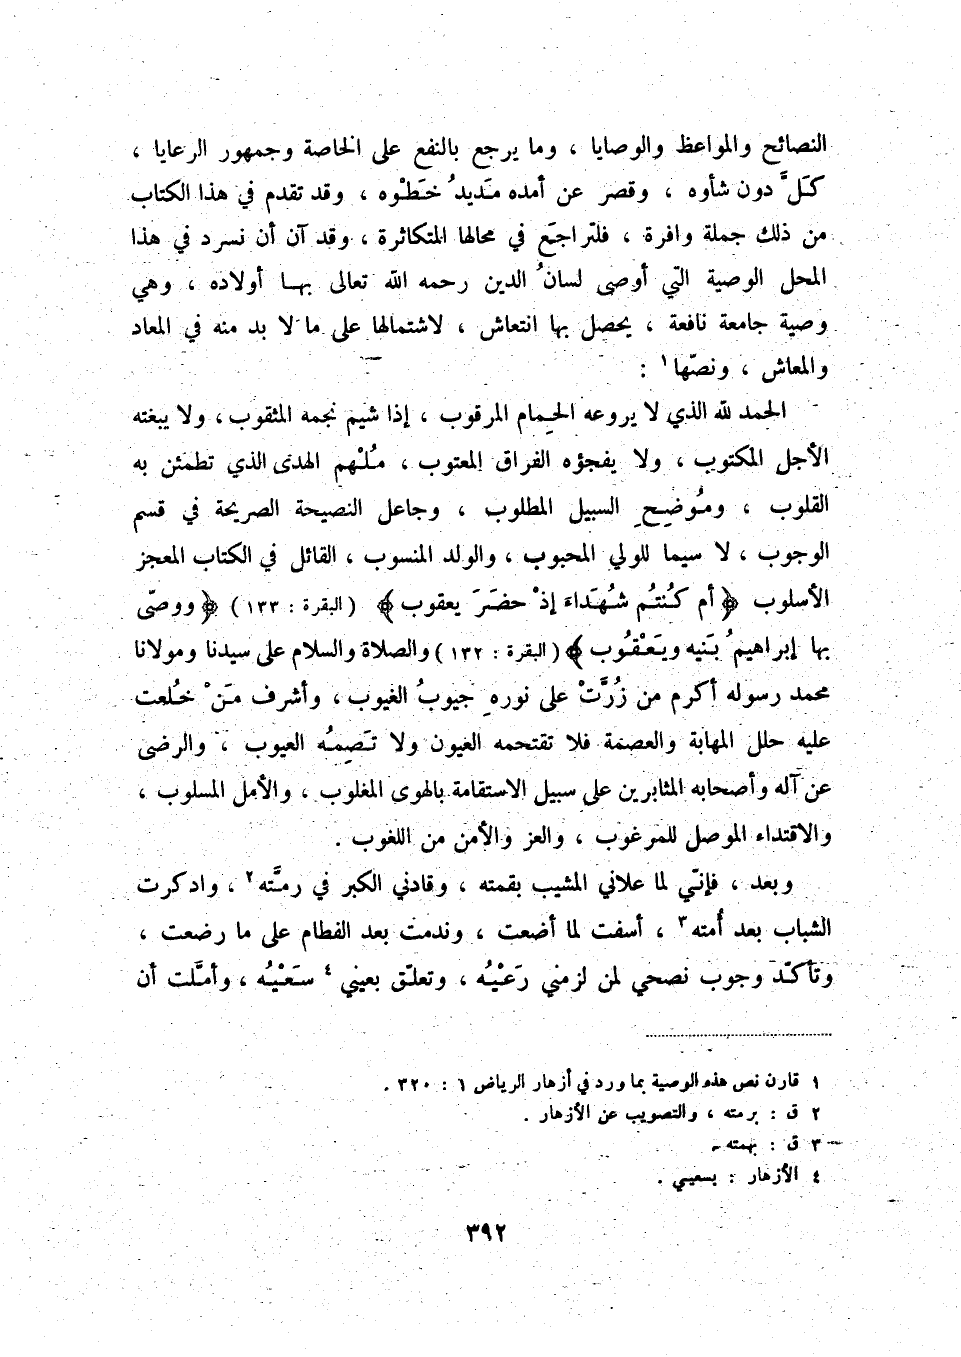 النصائح والمواعظ والوصايا ، وما يرجع بالنفع على الخاصة وجمهور الرعايا ،
كَلَّ دون شأوه ، وقصر عن أمده مَديدُ خَطْوه ، وقد تقدم في هذا الكتاب
من ذلك جملة وافرة ، فلتراجَع في محالها المتكاثرة ، وقد آن أن نسرد في هذا
المحل الوصية التي أوصى لسانُ الدين رحمه الله تعالى بها أولاده ، وهي
وصية جامعة نافعة ، يحصل بها انتعاش ، لاشتمالها على ما لا بد منه في المعاد
والمعاش ، ونصّها١ :
الحمد لله الذي لا يروعه الحِمام المرقوب ، إذا شيم نجمه المثقوب ، ولا يبغته
الأجل المكتوب ، ولا يفجؤه الفراق المعتوب ، مُلْهم الهدى الذي تطمئن به
القلوب ، ومُوضِح السبيل المطلوب ، وجاعل النصيحة الصريحة في قسم
الوجوب ، لا سيما للولي المحبوب ، والولد المنسوب ، القائل في الكتاب المعجز
الأسلوب ﴿ أم كُنتُم شُهَداءَ إذْ حضَرَ يعقوب ﴾ ( البقرة : ١٣٣ ) ﴿ ووصّى
بها إبراهيمُ بَنيه ويَعْقُوب ﴾ ( البقرة : ١٣٢ ) والصلاة والسلام على سيدنا ومولانا
محمد رسوله أكرم من زُرَّتْ على نورهِ جيوبُ الغيوب ، وأشرف مَنْ خُلعت
عليه حلل المهابة والعصمة فلا تقتحمه العيون ولا تَصِمُه العيوب ، والرضى
عن آله وأصحابه المثابرين على سبيل الاستقامة بالهوى المغلوب ، والأمل المسلوب ،
والاقتداء الموصل للمرغوب ، والعز والأمن من اللغوب .
وبعد ، فإنّي لما علاني المشيب بقمته ، وقادني الكبر في رمَّته٢ ، وادكرت
الشباب بعد أُمته٣ ، أسفت لما أضعت ، وندمت بعد الفطام على ما رضعت ،
وتأكّد وجوب نصحي لمن لزمني رَعْيُه ، وتعلّق بعيني٤ سَعْيُه ، وأمَّلت أن
١ قارن نص هذه الوصية بما ورد في أزهار الرياض ١ : ٣٢٠ .
٢ ق : برمته ، والتصويب عن الأزهار .
٣ ق : بهمته .
٤ الأزهار : بسعيي .
٣٩٢